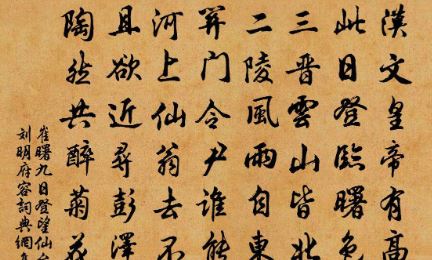 漢文皇帝有高
此日登臨曙色
三晋雲山皆北
二陵風雨自東
関门令尹誰能
河上仙翁去不
且欲近尋彭澤
陶然共醉菊花
崔曙九日登望仙台
刘明府容詞典網